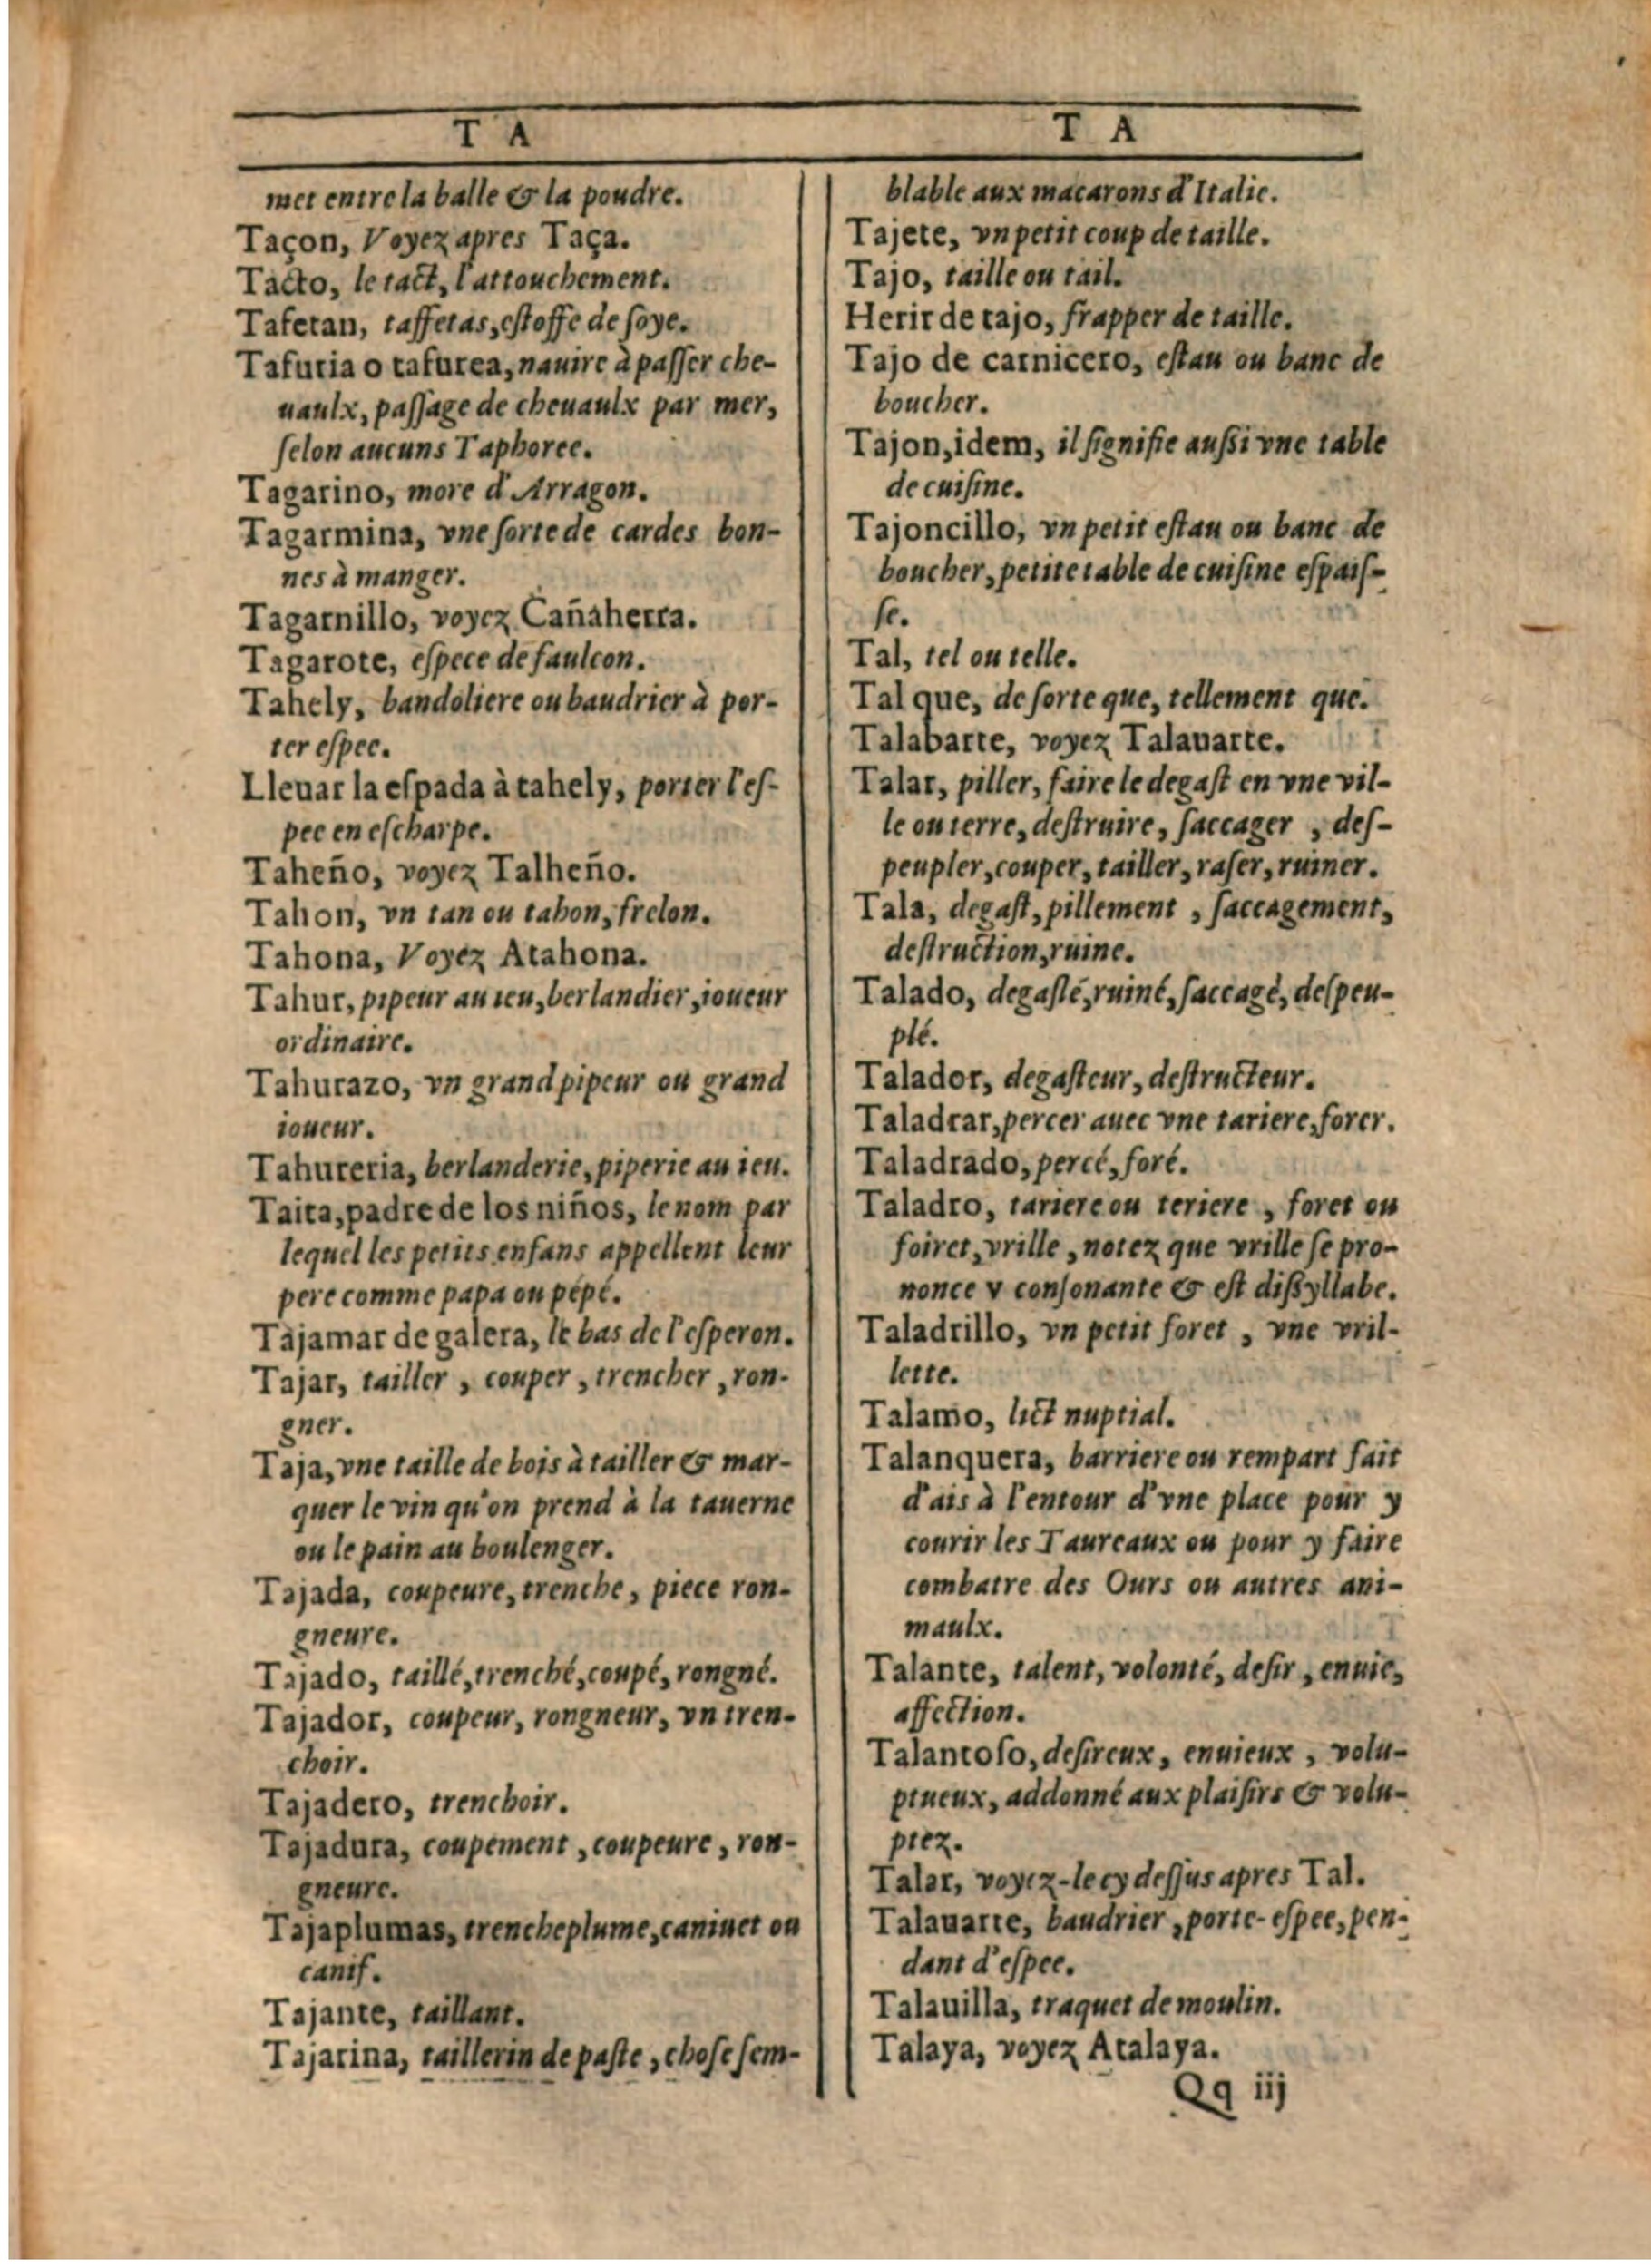 T A
met entre la balle & la poudre.
Taçon, Voyez apres Taça.
Tacto, le tact, l'attouchement.
Tafetan, taffetas, eſtoffe de ſoye.
Tafuria o tafurea, nauire à paſſer che-
uaulx, paſſage de cheuaulx par mer,
ſelon aucuns Taphoree.
Tagarino, more d'Arragon.
Tagarmina, vne ſorte de cardes bon-
nes à manger.
Tagarnillo, voyez Cañaherra.
Tagarote, eſpece de faulcon.
Tahely, bandoliere ou baudrier à por-
ter eſpee.
Lleuar la eſpada à tahely, porter l'eſ-
pee en eſcharpe.
Taheño, voyez Talheño.
Tahon, vn tan ou tahon, frelon.
Tahona, Voyez Atahona.
Tahur, pipeur au ieu, berlandier, ioueur
ordinaire.
Tahurazo, vn grand pipeur ou grand
ioueur.
Tahureria, berlanderie, piperie au ieu.
Taita, padre de los niños, le nom par
lequel les petits enfans appellent leur
pere comme papa ou pepé.
Tajamar de galera, le bas de l'eſperon.
Tajar, tailler, couper, trencher, ron-
gner.
Taja, vne taille de bois à tailler & mar-
quer le vin qu'on prend à la tauerne
ou le pain au boulenger.
Tajada, coupeure, trenche, piece ron-
gneure.
Tajado, taillé, trenché, coupé, rongné.
Tajador, coupeur, rongneur, vn tren-
choir.
Tajadero, trenchoir.
Tajadura, coupement, coupeure, ron-
gneure.
Tajaplumas, trencheplume, caniuet ou
canif.
Tajante, taillant.
Tajarina, taillerin de paſte, choſe ſem-
T A
blable aux macarons d'Italie.
Tajete, vn petit coup de taille.
Tajo, taille ou tail.
Herir de tajo, frapper de taille.
Tajo de carnicero, eſtau ou banc de
boucher.
Tajon, idem, il ſignifie auſſi vne table
de cuiſine.
Tajoncillo, vn petit eſtau ou banc de
boucher, petite table de cuiſine eſpaiſ-
ſe.
Tal, tel ou telle.
Tal que, de ſorte que, tellement que.
Talabarte, voyez Talauarte.
Talar, piller, faire le degaſt en vne vil-
le ou terre, deſtruire, ſaccager, deſ-
peupler, couper, tailler, raſer, ruiner.
Tala, degaſt, pillement, ſaccagement,
deſtruction, ruine.
Talado, degaſté, ruiné, ſaccagé, deſpeu-
plé.
Talador, degaſteur, deſtructeur.
Taladrar, percer auec vne tariere, forer.
Taladrado, percé, foré.
Taladro, tariere ou teriere, foret ou
foiret, vrille, notez que vrille ſe pro-
nonce v conſonante & eſt diſſyllabe.
Taladrillo, vn petit foret, vne vril-
lette.
Talamo, lict nuptial.
Talanquera, barriere ou rempart fait
d'ais à l'entour d'vne place pour y
courir les Taureaux ou pour y faire
combatre des Ours ou autres ani-
maulx.
Talante, talent, volonté, deſir, enuie,
affection.
Talantoſo, deſireux, enuieux, volu-
ptueux, addonné aux plaiſirs & volu-
ptez.
Talar, voyez-le cy deſſus apres Tal.
Talauarte, baudrier, porte-eſpee, pen-
dant d'eſpee.
Talauilla, traquet de moulin.
Talaya, voyez Atalaya.
Qq iij